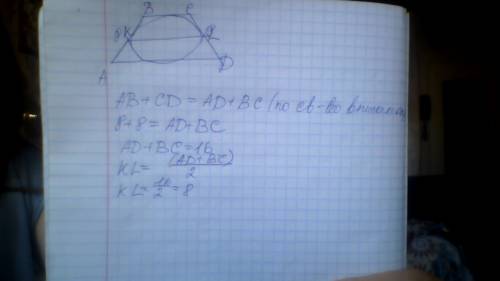 B C
8 K L 8
A D
AB + CD = AD + BC (по св-во
8 + 8 = AD + BC
AD + BC = 16
KL = (AD + BC) / 2
KL = 16/2 = 8